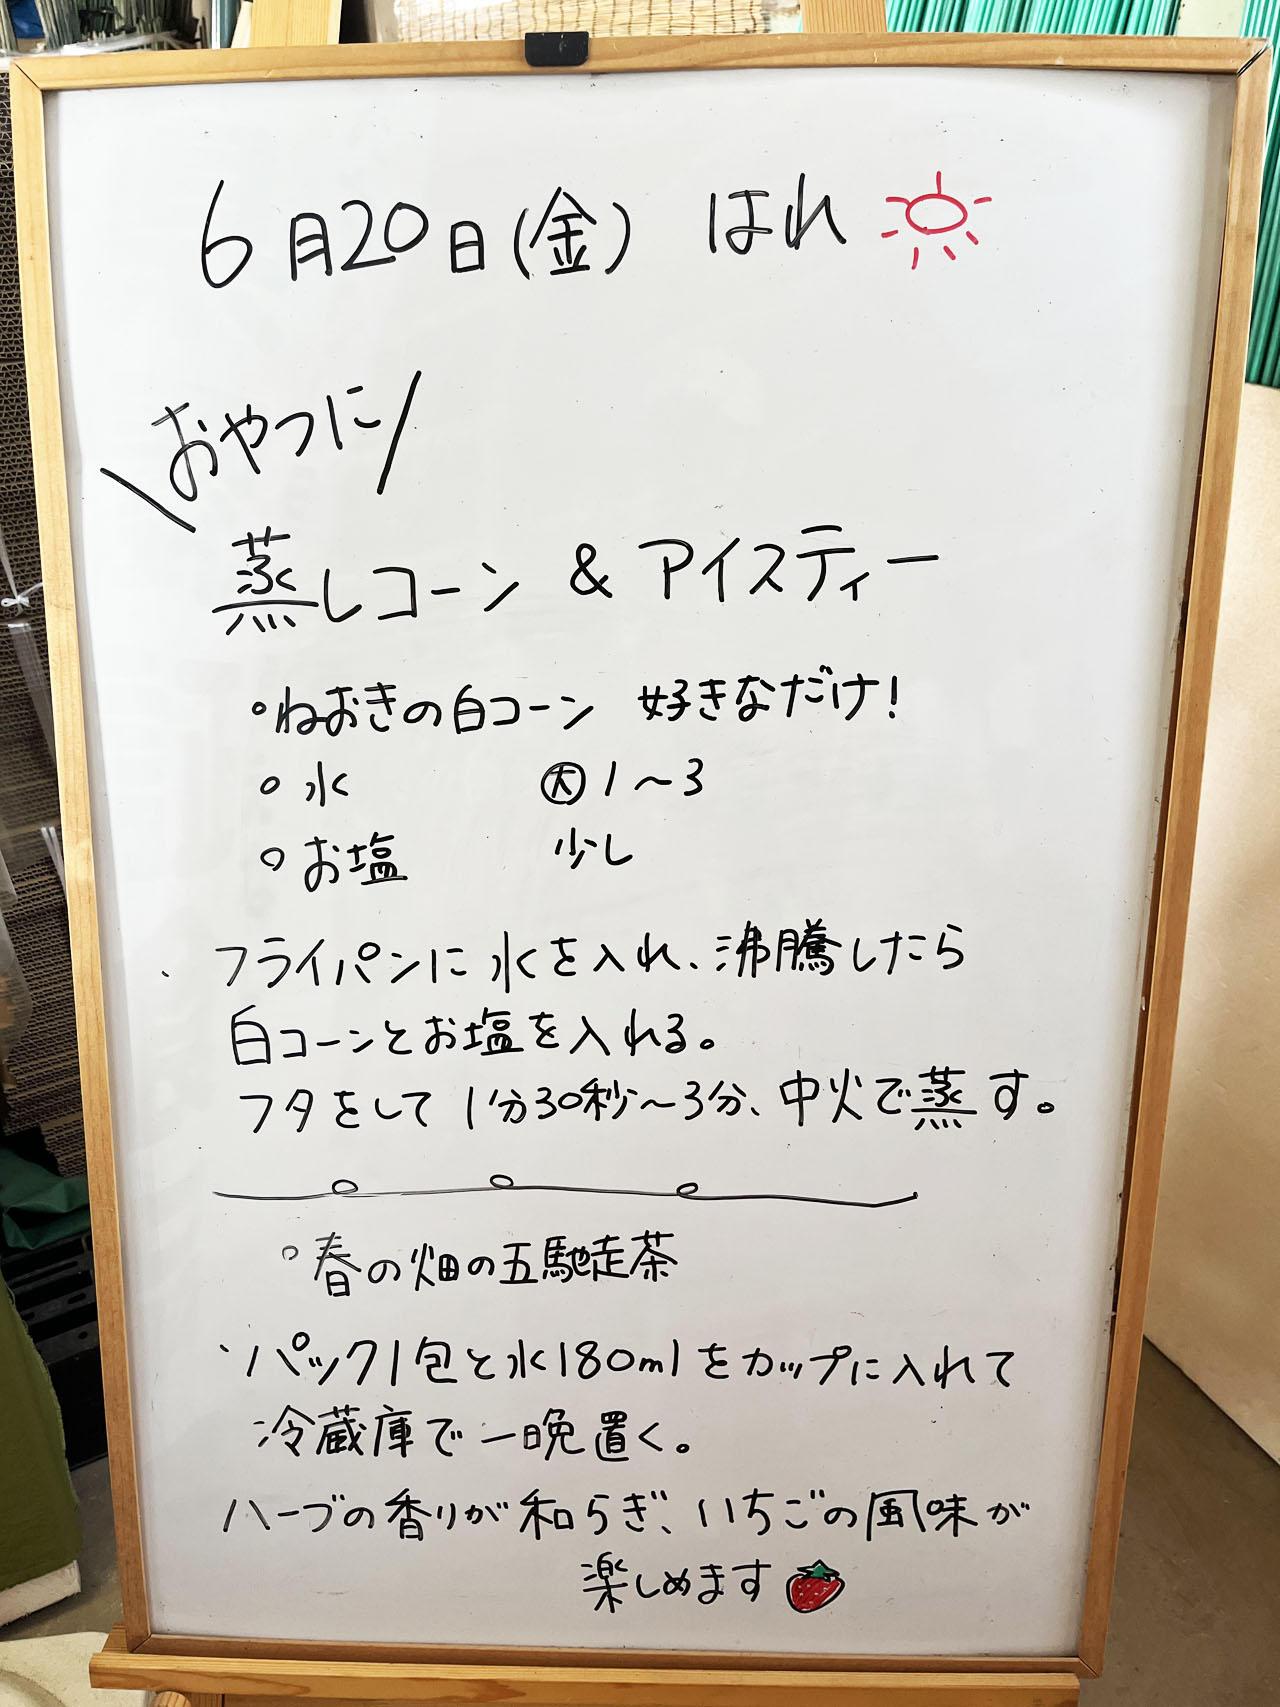 6月20日(金) はれ
\おやつに/
蒸しコーン & アイスティー
◦ねおきの白コーン 好きなだけ!
◦水 大1〜3
◦お塩 少し
フライパンに水を入れ、沸騰したら
白コーンとお塩を入れる。
フタをして1分30秒〜3分、中火で蒸す。
◦春の畑の五馳走茶
パック1包と水180mlをカップに入れて
冷蔵庫で一晩置く。
ハーブの香りが和らぎ、いちごの風味が
楽しめます